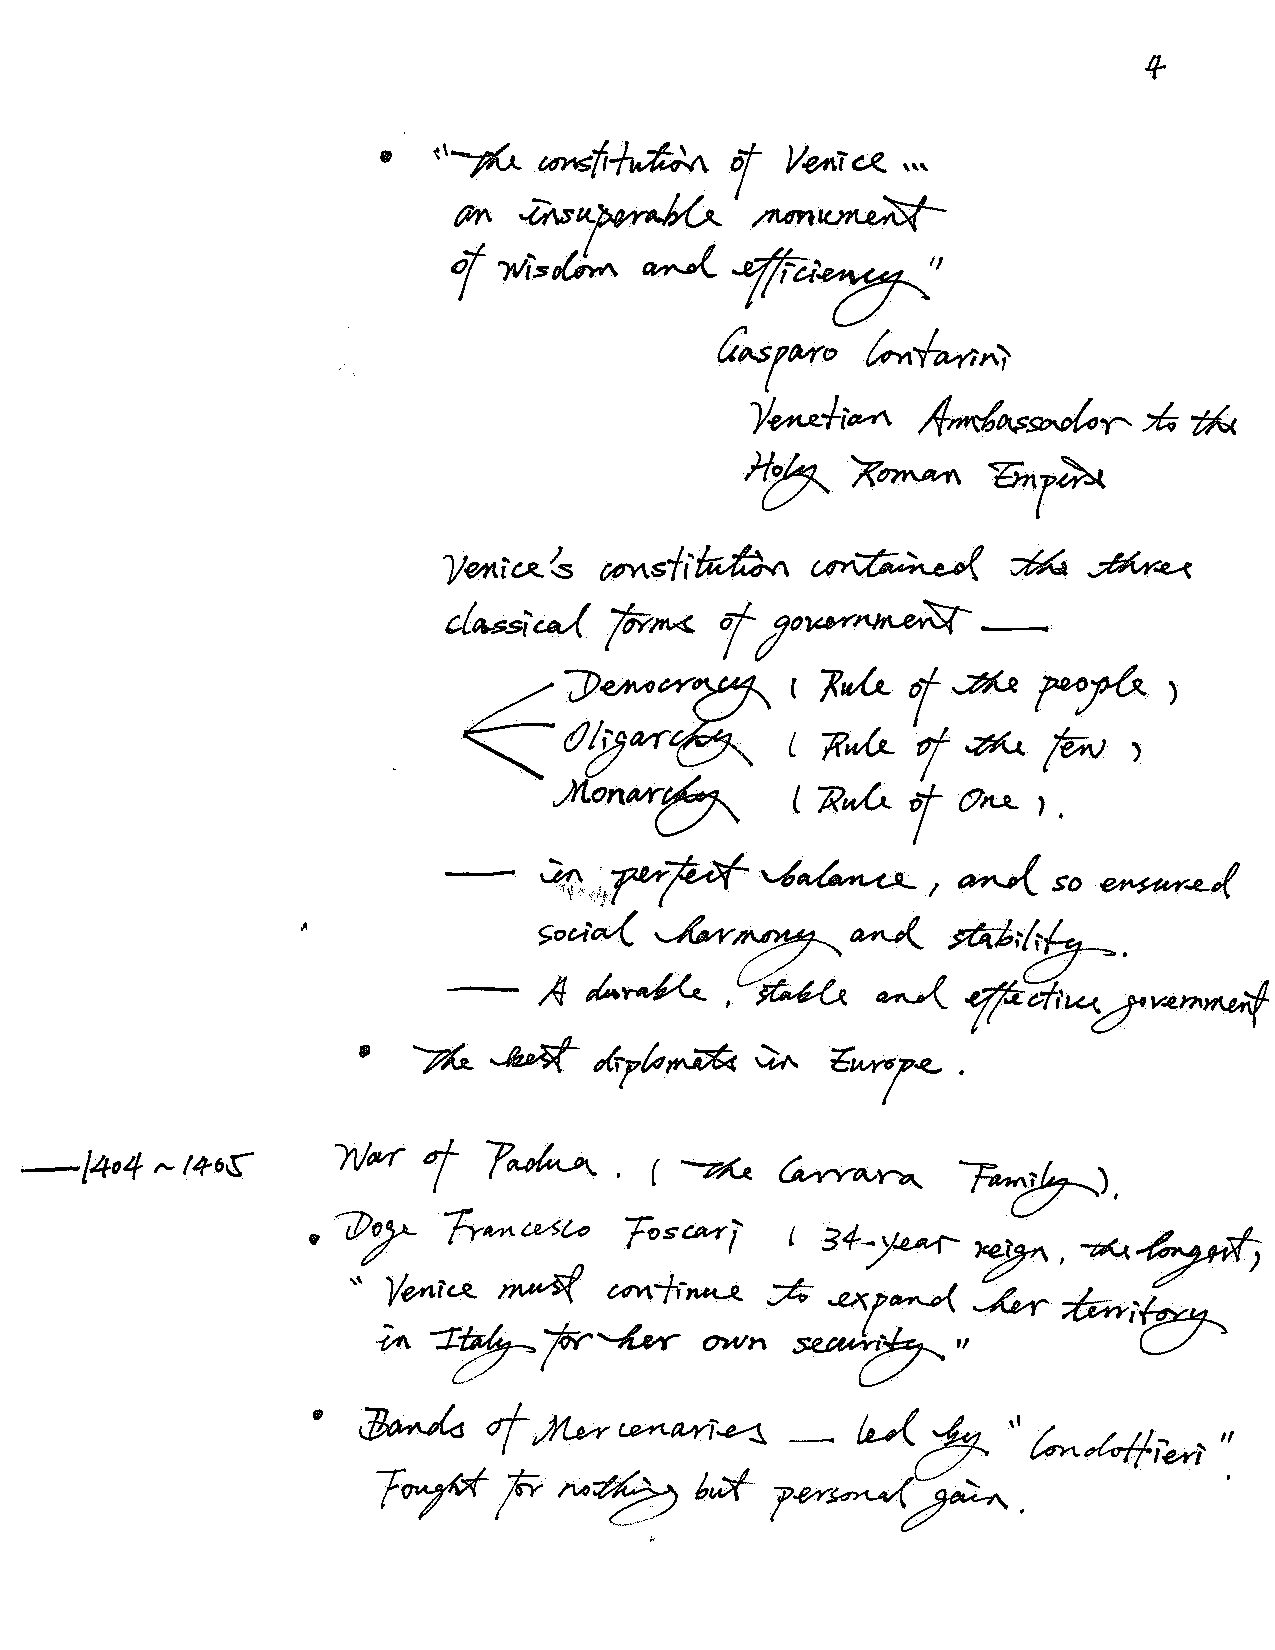 4
• "The constitution of Venice ...
an insuperable monument
of wisdom and efficiency"
Gasparo Contarini
Venetian Ambassador to the
Holy Roman Empire
Venice's constitution contained the three
classical forms of government —
Democracy (Rule of the people)
Oligarchy (Rule of the few)
Monarchy (Rule of One).
— in perfect balance, and so ensured
social harmony and stability.
— A durable, stable and effective government
• The best diplomats in Europe.
— 1404 ~ 1405 War of Padua. (The Carrara Family).
• Doge Francesco Foscari (34-year reign, the longest)
" Venice must continue to expand her territory
in Italy for her own security"
• Bands of Mercenaries — led by "Condottieri".
Fought for nothing but personal gain.